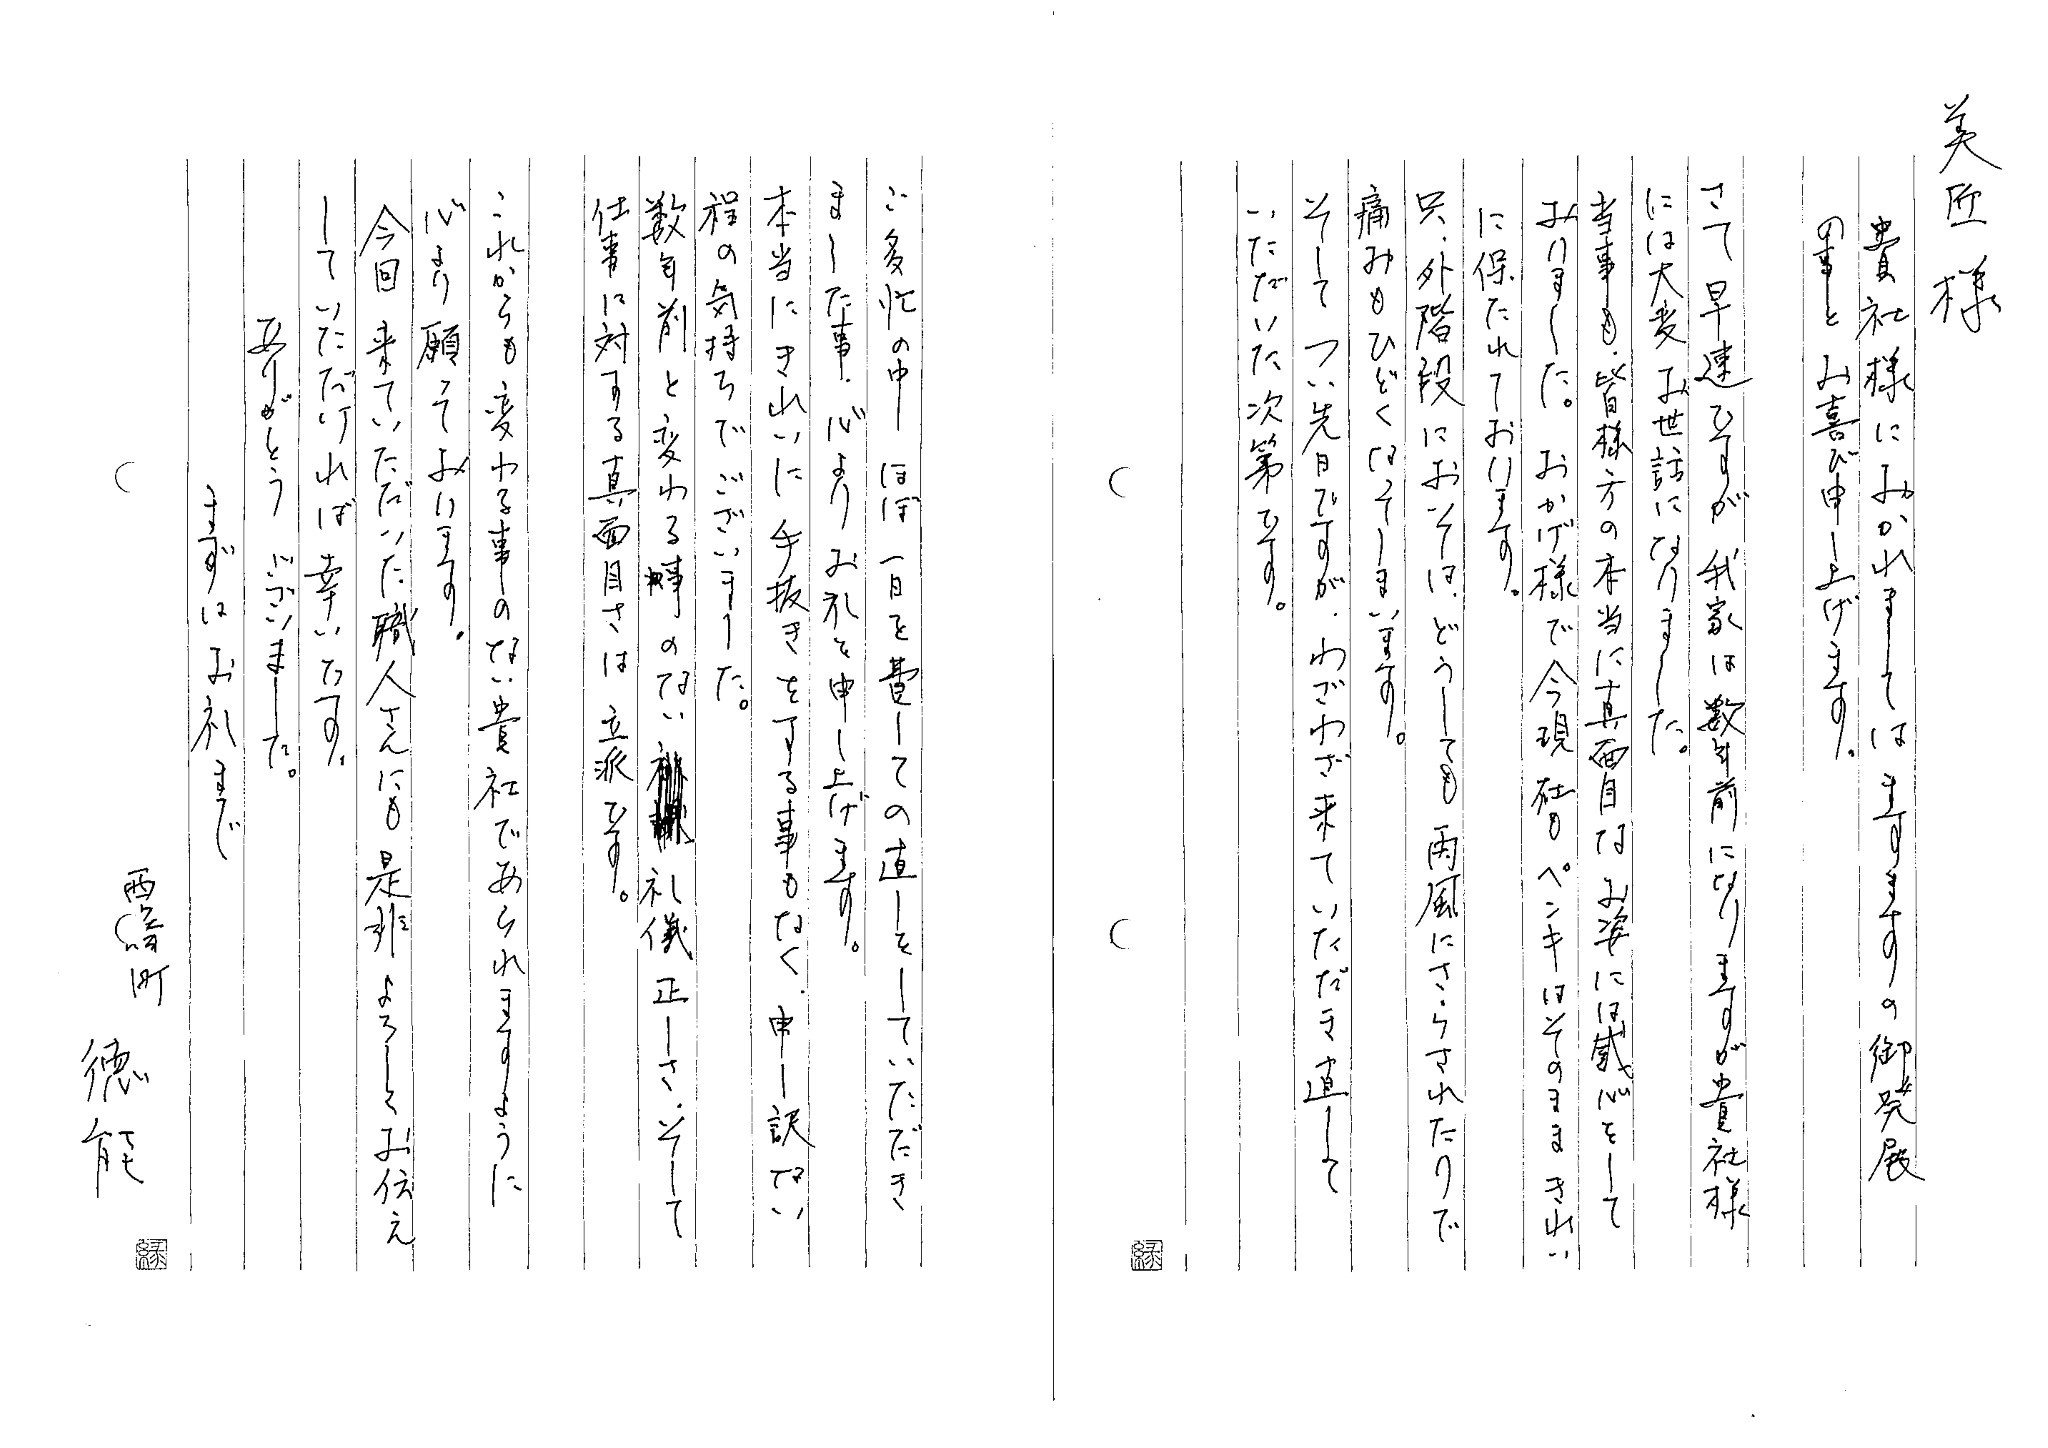 美匠様
貴社様におかれましてはますますの御発展
の事とお喜び申し上げます。
さて早速ですが我家は数年前になりますが貴社様
には大変お世話になりました。
当事も、皆様方の本当に真面目なお姿には感心をして
おりました。おかげ様で今現在もペンキはそのままきれい
に保たれております。
只、外階段におそは、どうしても雨風にさらされたりで
痛みもひどくなってしまいます。
そして つい先日ですが、わざわざ来ていただき直して
いただいた次第です。
ご多忙の中 ほぼ一日を費しての直しをしていただき
ました事、心よりお礼を申し上げます。
本当にきれいに手抜きをする事もなく、申し訳ない
程の気持ちでございました。
数年前と変わる事のない礼儀正しさ、そして
仕事に対する真面目さは立派です。
これからも変わる事のない貴社であられますように
心より願っております。
今回来ていただいた職人さんにも是非よろしくお伝え
していただければ幸いです。
ありがとうございました。
まずはお礼まで
町 徳能
縁
縁